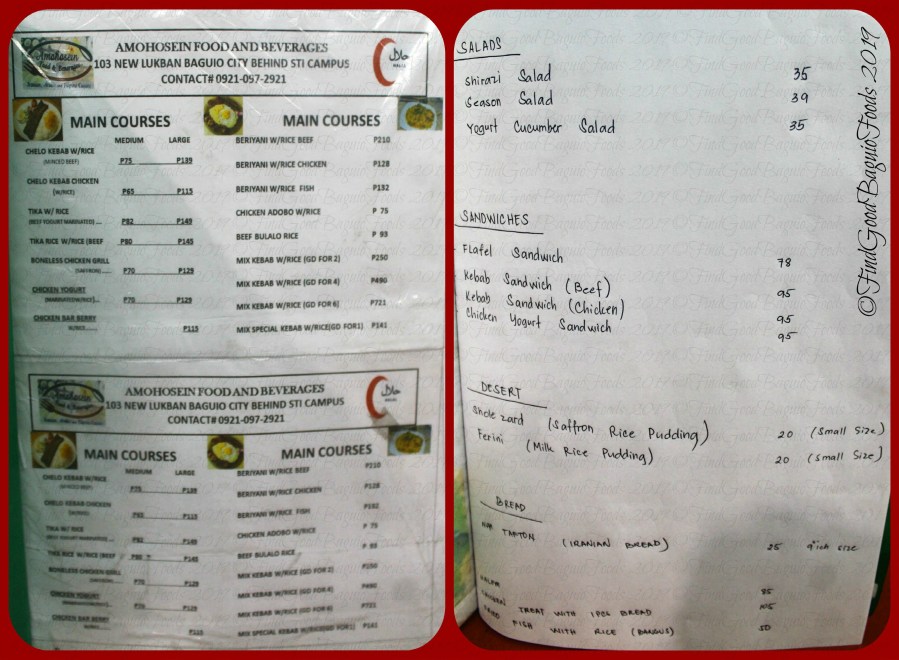 Amohosein
Food & Beverages
AMOHOSEIN FOOD AND BEVERAGES
103 NEW LUKBAN BAGUIO CITY BEHIND STI CAMPUS
CONTACT# 0921-097-2921
حلال
HALAL
MAIN COURSES
MEDIUM LARGE
CHELO KEBAB W/RICE
(MINCED BEEF) P75 P139
CHELO KEBAB CHICKEN
(W/RICE) P65 P115
TIKA W/ RICE
(BEEF YOGURT MARINATED) .... P82 P149
TIKA RICE W/RICE (BEEF P80 P145
BONELESS CHICKEN GRILL
(SAFFRON) P70 P129
CHICKEN YOGURT
(MARINATED W/RICE)... P70 P129
CHICKEN BAR BERRY
W/RICE....... P115
MAIN COURSES
BERIYANI W/RICE BEEF P210
BERIYANI W/RICE CHICKEN P128
BERIYANI W/RICE FISH P132
CHICKEN ADOBO W/RICE P 75
BEEF BULALO RICE P 93
MIX KEBAB W/RICE (GD FOR 2) P250
MIX KEBAB W/RICE (GD FOR 4) P490
MIX KEBAB W/RICE (GD FOR 6) P721
MIX SPECIAL KEBAB W/RICE(GD FOR1) P141
AMOHOSEIN FOOD AND BEVERAGES
103 NEW LUKBAN BAGUIO CITY BEHIND STI CAMPUS
CONTACT# 0921-097-2921
حلال
MAIN COURSES
MEDIUM LARGE
CHELO KEBAB W/RICE
(MINCED BEEF) P75 P139
CHELO KEBAB CHICKEN
(W/RICE) P65 P115
TIKA W/ RICE
(BEEF YOGURT MARINATED) .... P82 P149
TIKA RICE W/RICE (BEEF P80 P145
BONELESS CHICKEN GRILL
(SAFFRON) P70 P129
CHICKEN YOGURT
P70 P129
CHICKEN BAR BERRY
W/RICE....... P115
MAIN COURSES
BERIYANI W/RICE BEEF P210
BERIYANI W/RICE CHICKEN P128
BERIYANI W/RICE FISH P132
CHICKEN ADOBO W/RICE P 75
BEEF BULALO RICE P 93
MIX KEBAB W/RICE (GD FOR 2) P250
MIX KEBAB W/RICE (GD FOR 4) P490
MIX KEBAB W/RICE (GD FOR 6) P721
MIX SPECIAL KEBAB W/RICE(GD FOR1) P141
SALADS
Shirazi Salad 35
Season Salad 39
Yogurt Cucumber Salad 35
SANDWICHES
Flafel Sandwich 78
Kebab Sandwich (Beef) 95
Kebab Sandwich (Chicken) 95
Chicken Yogurt Sandwich 95
DESERT
Shole zard (Saffron Rice Pudding) 20 (Small Size)
Ferini (Milk Rice Pudding) 20 (Small Size)
BREAD
TAFTON (IRANIAN BREAD) 25 9"ich size
85
TREAT WITH 1PCS BREAD 105
FISH WITH RICE (BANGUS) 50
©FindGoodBaguioFoods 2019